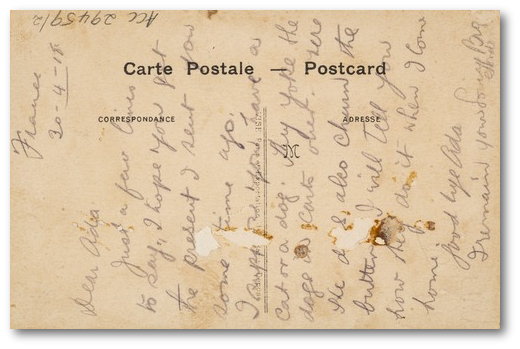 Acc 29459/2
Carte Postale — Postcard
CORRESPONDANCE
ADRESSE
France
30-4-18
Dear Ada
Just a few lines
to say I hope you got
the present I sent you
some time ago.
I suppose you have a
cat or a dog. They yoke the
dogs in carts over here
the dogs also churn the
butter I will tell you
how they do it when I come
home.
Good bye Ada
I remain your loving